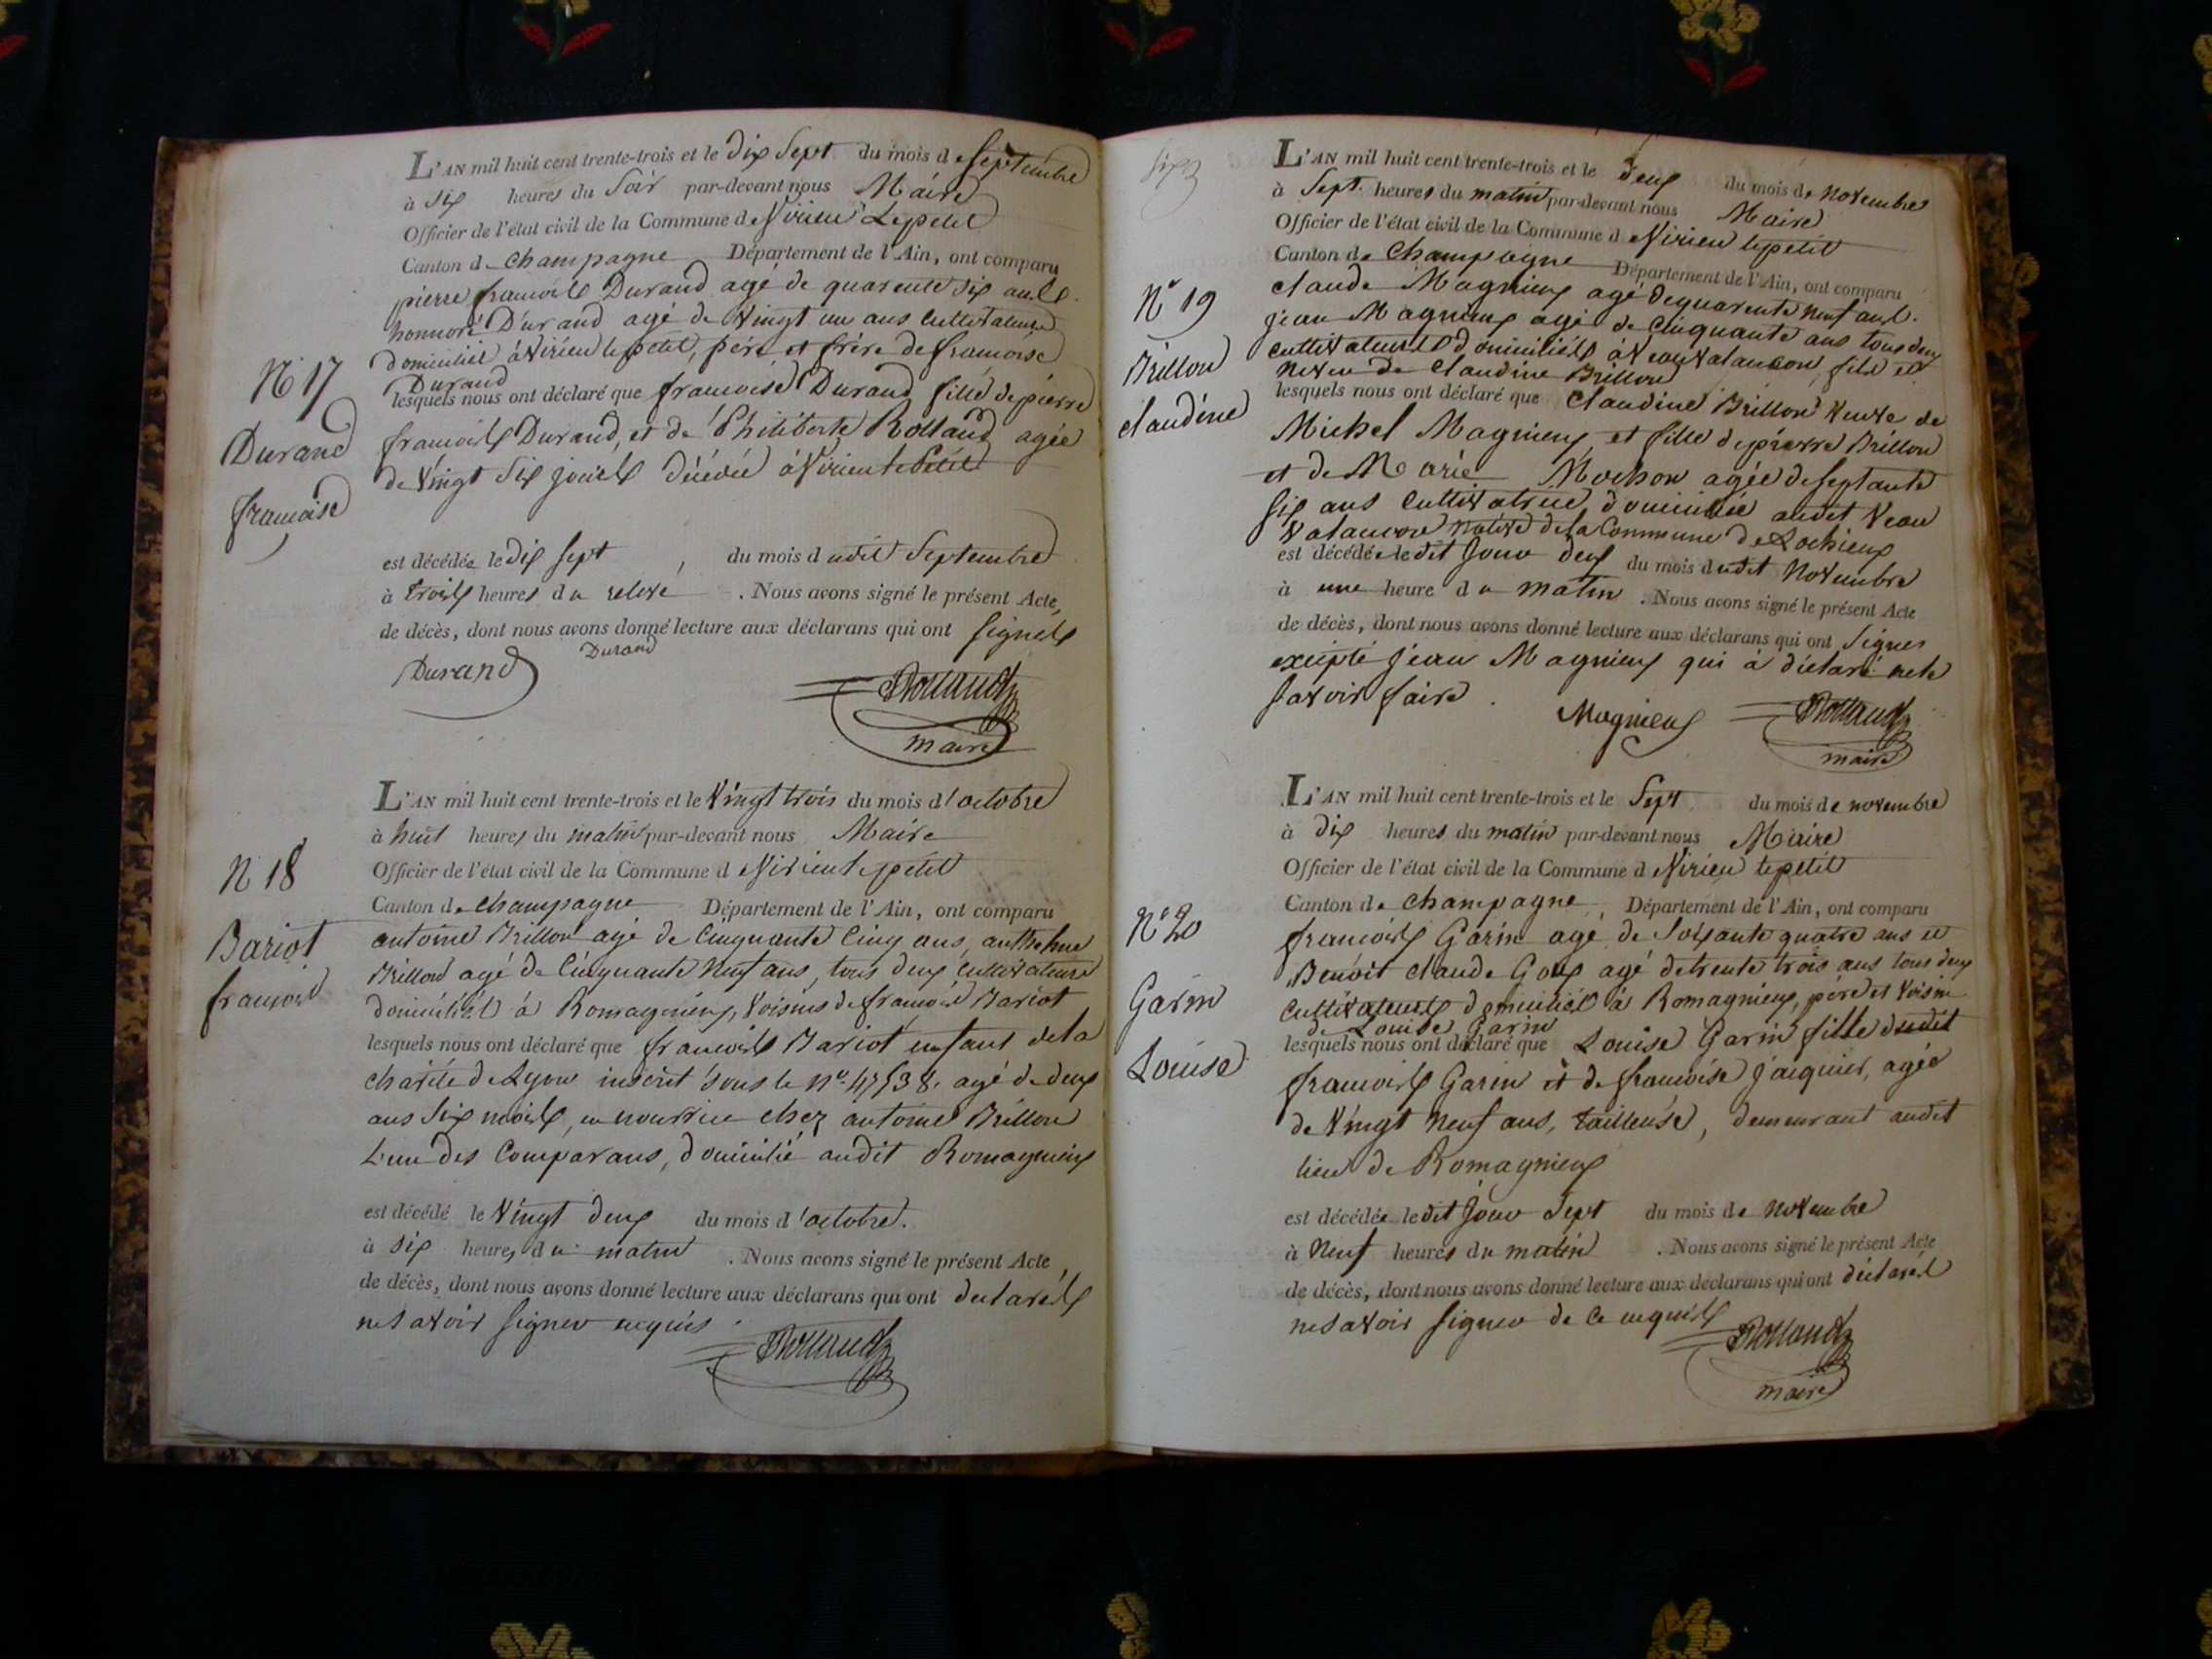 L'AN mil huit cent trente-trois et le dix Sept du mois de Septembre
à six heures du Soir par-devant nous Maire
Officier de l'état civil de la Commune de Virieu Lepetit
Canton de champagne Département de l'Ain, ont comparu
pierre francois Durand agé de quarente six ans et
honnoré Durand agé de vingt un ans cultivateurs
domiciliés à Virieu lepetit, père et frère de francoise
Durand
lesquels nous ont déclaré que francoise Durand fille de pierre
francois Durand, et de Philiberte Rolland agée
de vingt six jours décédée à Virieu le Petit
N° 17
Durand
francoise
est décédée le dix sept du mois dudit Septembre
à trois heures du relevé . Nous avons signé le présent Acte
de décès, dont nous avons donné lecture aux déclarans qui ont signés
Durand Durand
Rolland
maire
L'AN mil huit cent trente-trois et le vingt trois du mois d'octobre
à huit heures du matin par-devant nous Maire
Officier de l'état civil de la Commune de Virieu lepetit
Canton de champagne Département de l'Ain, ont comparu
antoine Brillon agé de cinquante cinq ans, anthelme
Brillon agé de cinquante neuf ans, tous deux cultivateurs
domiciliés à Romagnieux, voisins de francois Bariot
lesquels nous ont déclaré que francois Bariot enfant de la
charité de Lyon inscrit sous le n° 47538. agé de deux
ans six mois, en nourrice chez antoine Brillon
l'un des Comparans, domicilié audit Romagnieux
N 18
Bariot
francois
est décédé le vingt deux du mois d'octobre.
à six heures du matin . Nous avons signé le présent Acte
de décès, dont nous avons donné lecture aux déclarans qui ont declarés
ne savoir signer requis .
Rolland
L'AN mil huit cent trente-trois et le deux du mois de novembre
à Sept heures du matin par-devant nous Maire
Officier de l'état civil de la Commune de Virieu lepetit
Canton de Champagne Département de l'Ain, ont comparu
claude Magnieux agé de quarente neuf ans.
jean Magnieux agé de cinquante ans tous deux
cultivateurs domiciliés à fils et
neveu de Claudine Brillon
lesquels nous ont déclaré que Claudine Brillon veuve de
Michel Magnieux et fille de pierre Brillon
et de Marie Mochon agée de septante
six ans cultivatrice, domiciliée audit
native de la Commune de Lochieux
N° 19
Brillon
claudine
est décédée ledit jour deux du mois dudit Novembre
à une heure du matin . Nous avons signé le présent Acte
de décès, dont nous avons donné lecture aux déclarans qui ont Signer
excepté jean Magnieux qui à déclaré ne le
savoir faire .
Magnieux Rolland
maire
L'AN mil huit cent trente-trois et le Sept du mois de novembre
à Dix heures du matin par-devant nous Maire
Officier de l'état civil de la Commune de Virieu lepetit
Canton de champagne, Département de l'Ain, ont comparu
francois Garin agé de soixante quatre ans et
Benoit claude Goux agé de trente trois ans tous deux
cultivateurs domiciliés à Romagnieux, père et voisin
de Louise Garin
lesquels nous ont déclaré que Louise Garin fille dudit
francois Garin et de francoise jacquier, agée
de vingt neuf ans, tailleuse, demeurant audit
lieu de Romagnieux
N° 20
Garin
Louise
est décédée ledit jour Sept du mois de novembre
à Neuf heures du matin . Nous avons signé le présent Acte
de décès, dont nous avons donné lecture aux déclarans qui ont déclarés
ne savoir signer de ce requis
Rolland
maire